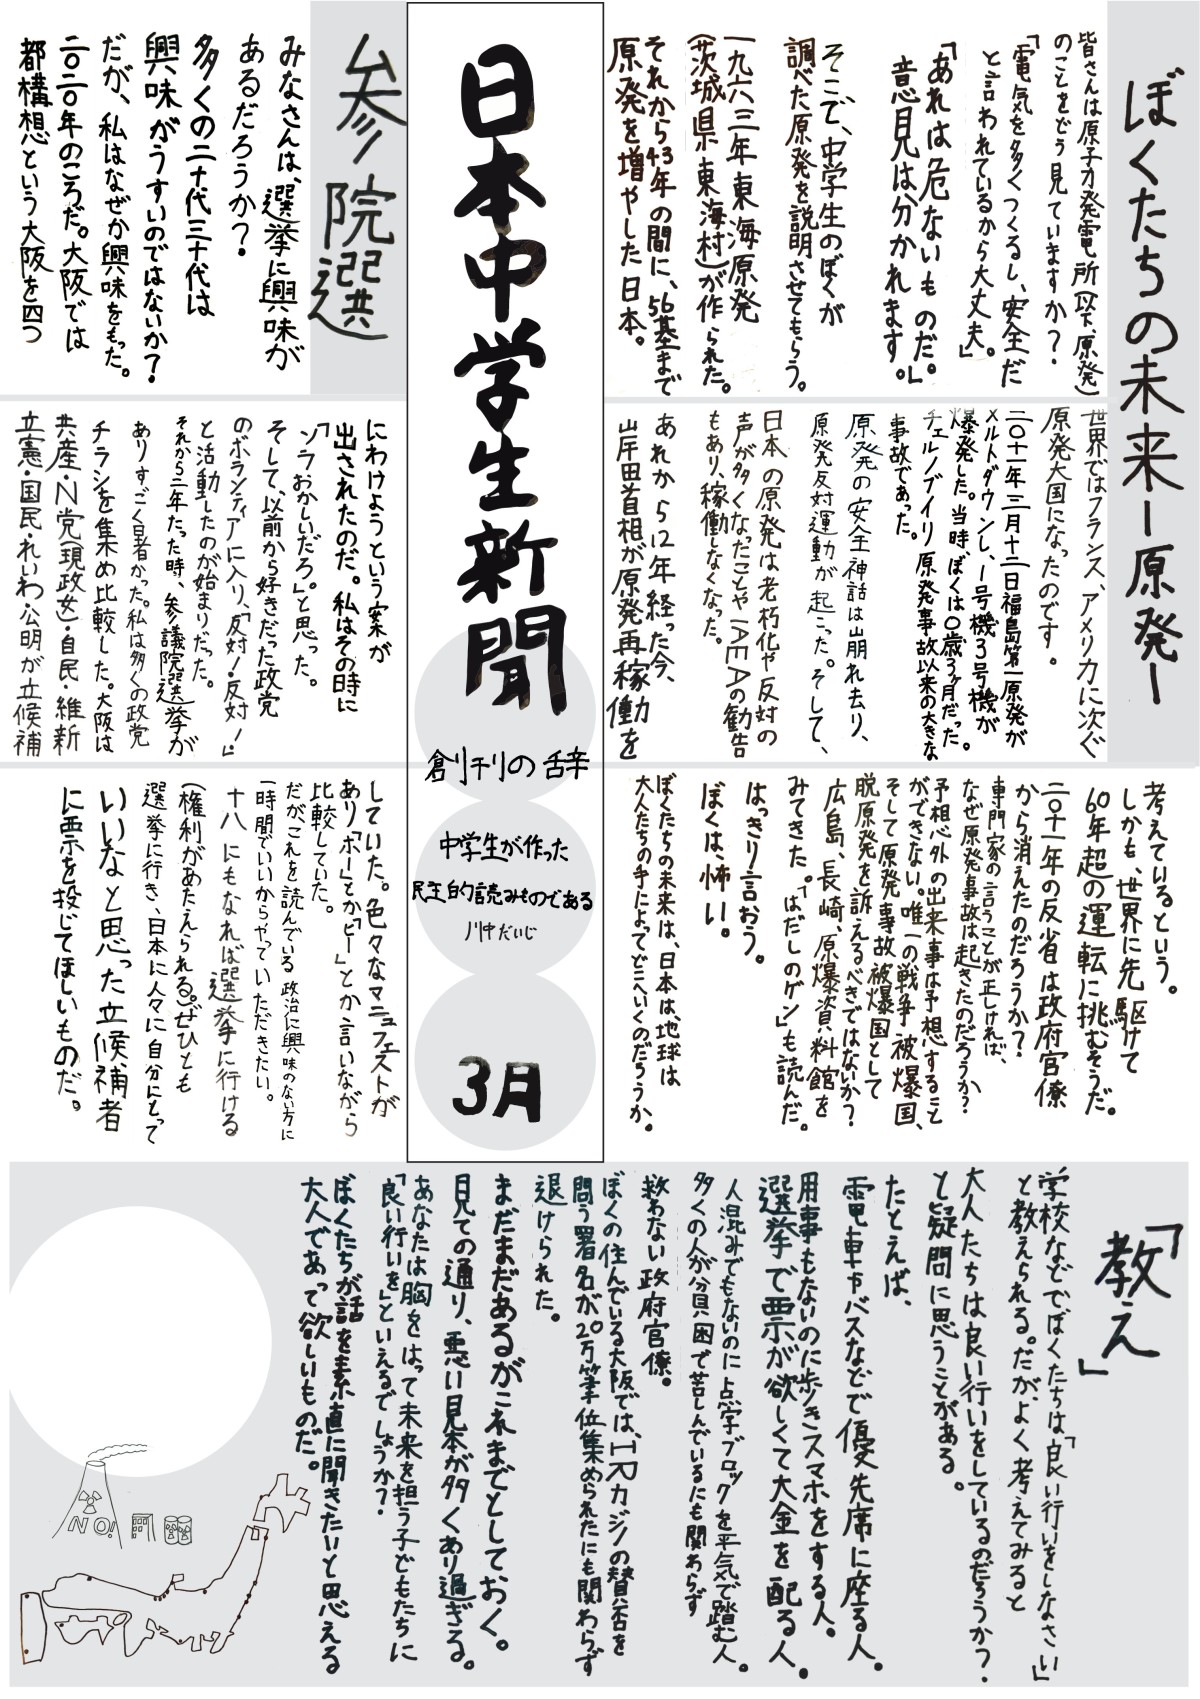 ぼくたちの未来ー原発ー
皆さんは原子力発電所(以下、原発)
のことをどう見ていますか?
「電気を多くつくるし、安全だ
と言われているから大丈夫。」
「あれは危ないものだ。」
意見は分かれます。
そこで、中学生のぼくが
調べた原発を説明させてもらう。
一九六三年東海原発
(茨城県東海村)が作られた。
それから43年の間に、56基まで
原発を増やした日本。
世界ではフランス、アメリカに次ぐ
原発大国になったのです。
二〇十一年三月十二日福島第一原発が
メルトダウンし、1号機3号機が
爆発した。当時、ぼくは0歳3ヶ月だった。
チェルノブイリ原発事故以来の大きな
事故であった。
原発の安全神話は山崩れ去り、
原発反対運動が起こった。そして、
日本の原発は老朽化や反対の
声が多くなったことやIAEAの勧告
もあり、稼働しなくなった。
あれから12年経った今、
岸田首相が原発再稼働を
考えているという。
しかも、世界に先駆けて
60年超の運転に挑むそうだ。
二〇十一年の反省は政府官僚
から消えたのだろうか?
専門家の言うことが正しければ、
なぜ原発事故は起きたのだろうか?
予想心外の出来事は予想すること
ができない。唯一の戦争被爆国、
そして原発事故被爆国として
脱原発を訴えるべきではないか?
広島、長崎、原爆資料館を
みてきた。「はだしのゲン」も読んだ。
はっきり言おう。
ぼくは、怖い。
ぼくたちの未来は、日本は、地球は
大人たちの手によってどこへいくのだろうか。
日本中学生新聞
創刊の辞
中学生が作った
民主的読みものである
川中だいじ
3月
参院選
みなさんは、選挙に興味が
あるだろうか?
多くの二十代三十代は
興味がうすいのではないか?
だが、私はなぜか興味をもった。
二〇二〇年のころだ。大阪では
都構想という大阪を四つ
にわけようという案が
出されたのだ。私はその時に
「ソラおかしいだろ。」と思った。
そして、以前から好きだった政党
のボランティアに入り、「反対!反対!」
と活動したのが始まりだった。
それから二年たった時、参議院選挙が
ありすごく暑かった。私は多くの政党
チラシを集め比較した。大阪は
共産・N党(現政女)・自民・維新
立憲・国民・れいわ・公明が立候補
していた。色々なマニュフェストが
あり、「ホー」とか「ヒー」とか言いながら
比較していた。
だが、これを読んでいる政治に興味のない方に
一時間でいいからやっていただきたい。
十八にもなれば選挙に行ける
(権利があたえられる。)ぜひとも
選挙に行き、日本に人々に自分にとって
いいなと思った立候補者
に票を投じてほしいものだ。
「教え」
学校などでぼくたちは、「良い行いをしなさい」
と教えられる。だが、よく考えてみると
大人たちは良い行いをしているのだろうか?
と疑問に思うことがある。
たとえば、
電車やバスなどで優先席に座る人。
用事もないのに歩きスマホをする人。
選挙で票が欲しくて大金を配る人。
人混みでもないのに点字ブロックを平気で踏む人。
多くの人が貧困で苦しんでいるにも関わらず
救わない政府官僚。
ぼくの住んでいる大阪では、IRカジノの賛否を
問う署名が20万筆位集められたにも関わらず
退けられた。
まだまだあるがこれまでとしておく。
見ての通り、悪い見本が多くあり過ぎる。
あなたは胸をはって未来を担う子どもたちに
「良い行いを」といえるでしょうか?
ぼくたちが話を素直に聞きたいと思える
大人であって欲しいものだ。
NO!